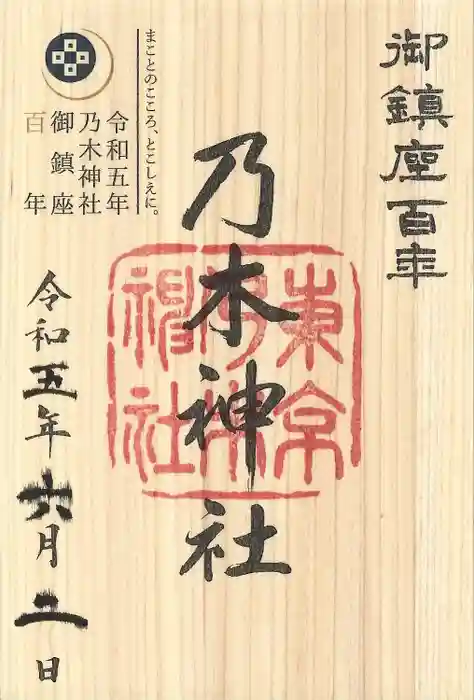 御鎮座百年
乃木神社
東京
乃木神社
まことのこころ、とこしえに。
令和五年
乃木神社
御鎮座
百年
令和五年六月二日